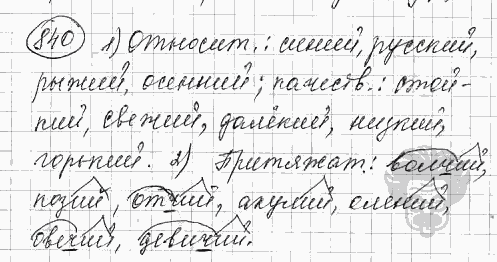 840 1) Относит.: синий, русский,
рыжий, осенний; качеств.: стой-
кий, свежий, далёкий, низкий,
горький. 2) Притяжат: волчий,
козий, отчий, акулий, олений,
овечий, девичий.